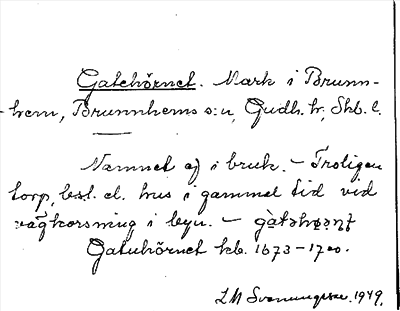 Gatehörnet. Mark i Brunn-
hem, Brunnhems s:n, Gudh. hr, Skb. l.
Namnet ej i bruk. – Troligen
torp, best. el. hus i gammal tid vid
vägkorsning i byn. –
Gatuhörnet kb. 1673–1700.
1949.